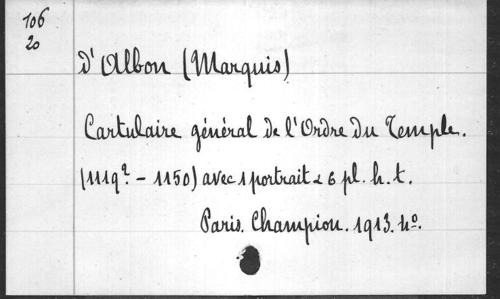 106
20
D'Albon (Marquis)
Cartulaire général de l'Ordre du Temple.
(1119? - 1150) avec 1 portrait & 6 pl. h. t.
Paris. Champion. 1913. 4º.